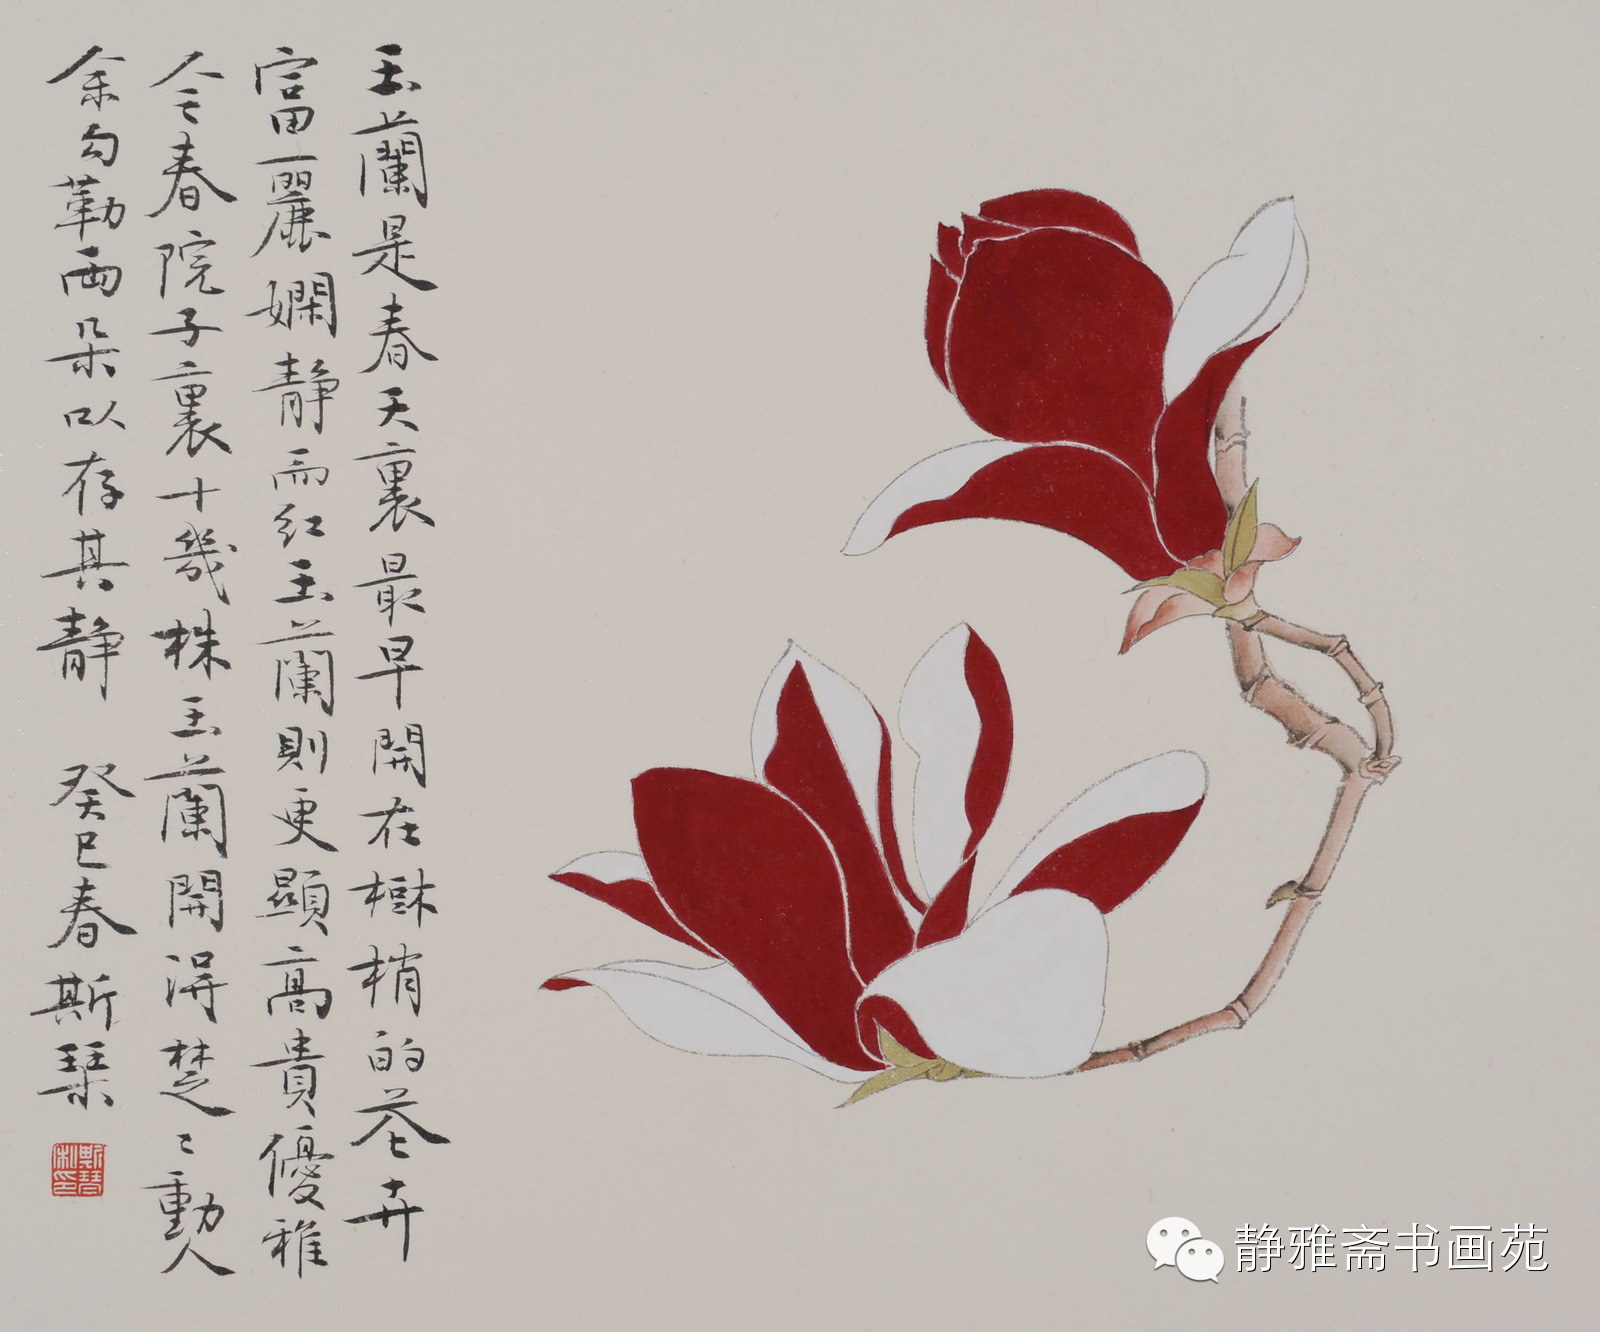 玉蘭是春天裏最早開在樹梢的花卉
富麗嫻静而红玉蘭則更顯高貴優雅
今春院子裏十幾株玉蘭開得楚〻動人
余勾勒两朵以存其静 癸巳春斯琴
斯琴制印
静雅斋书画苑